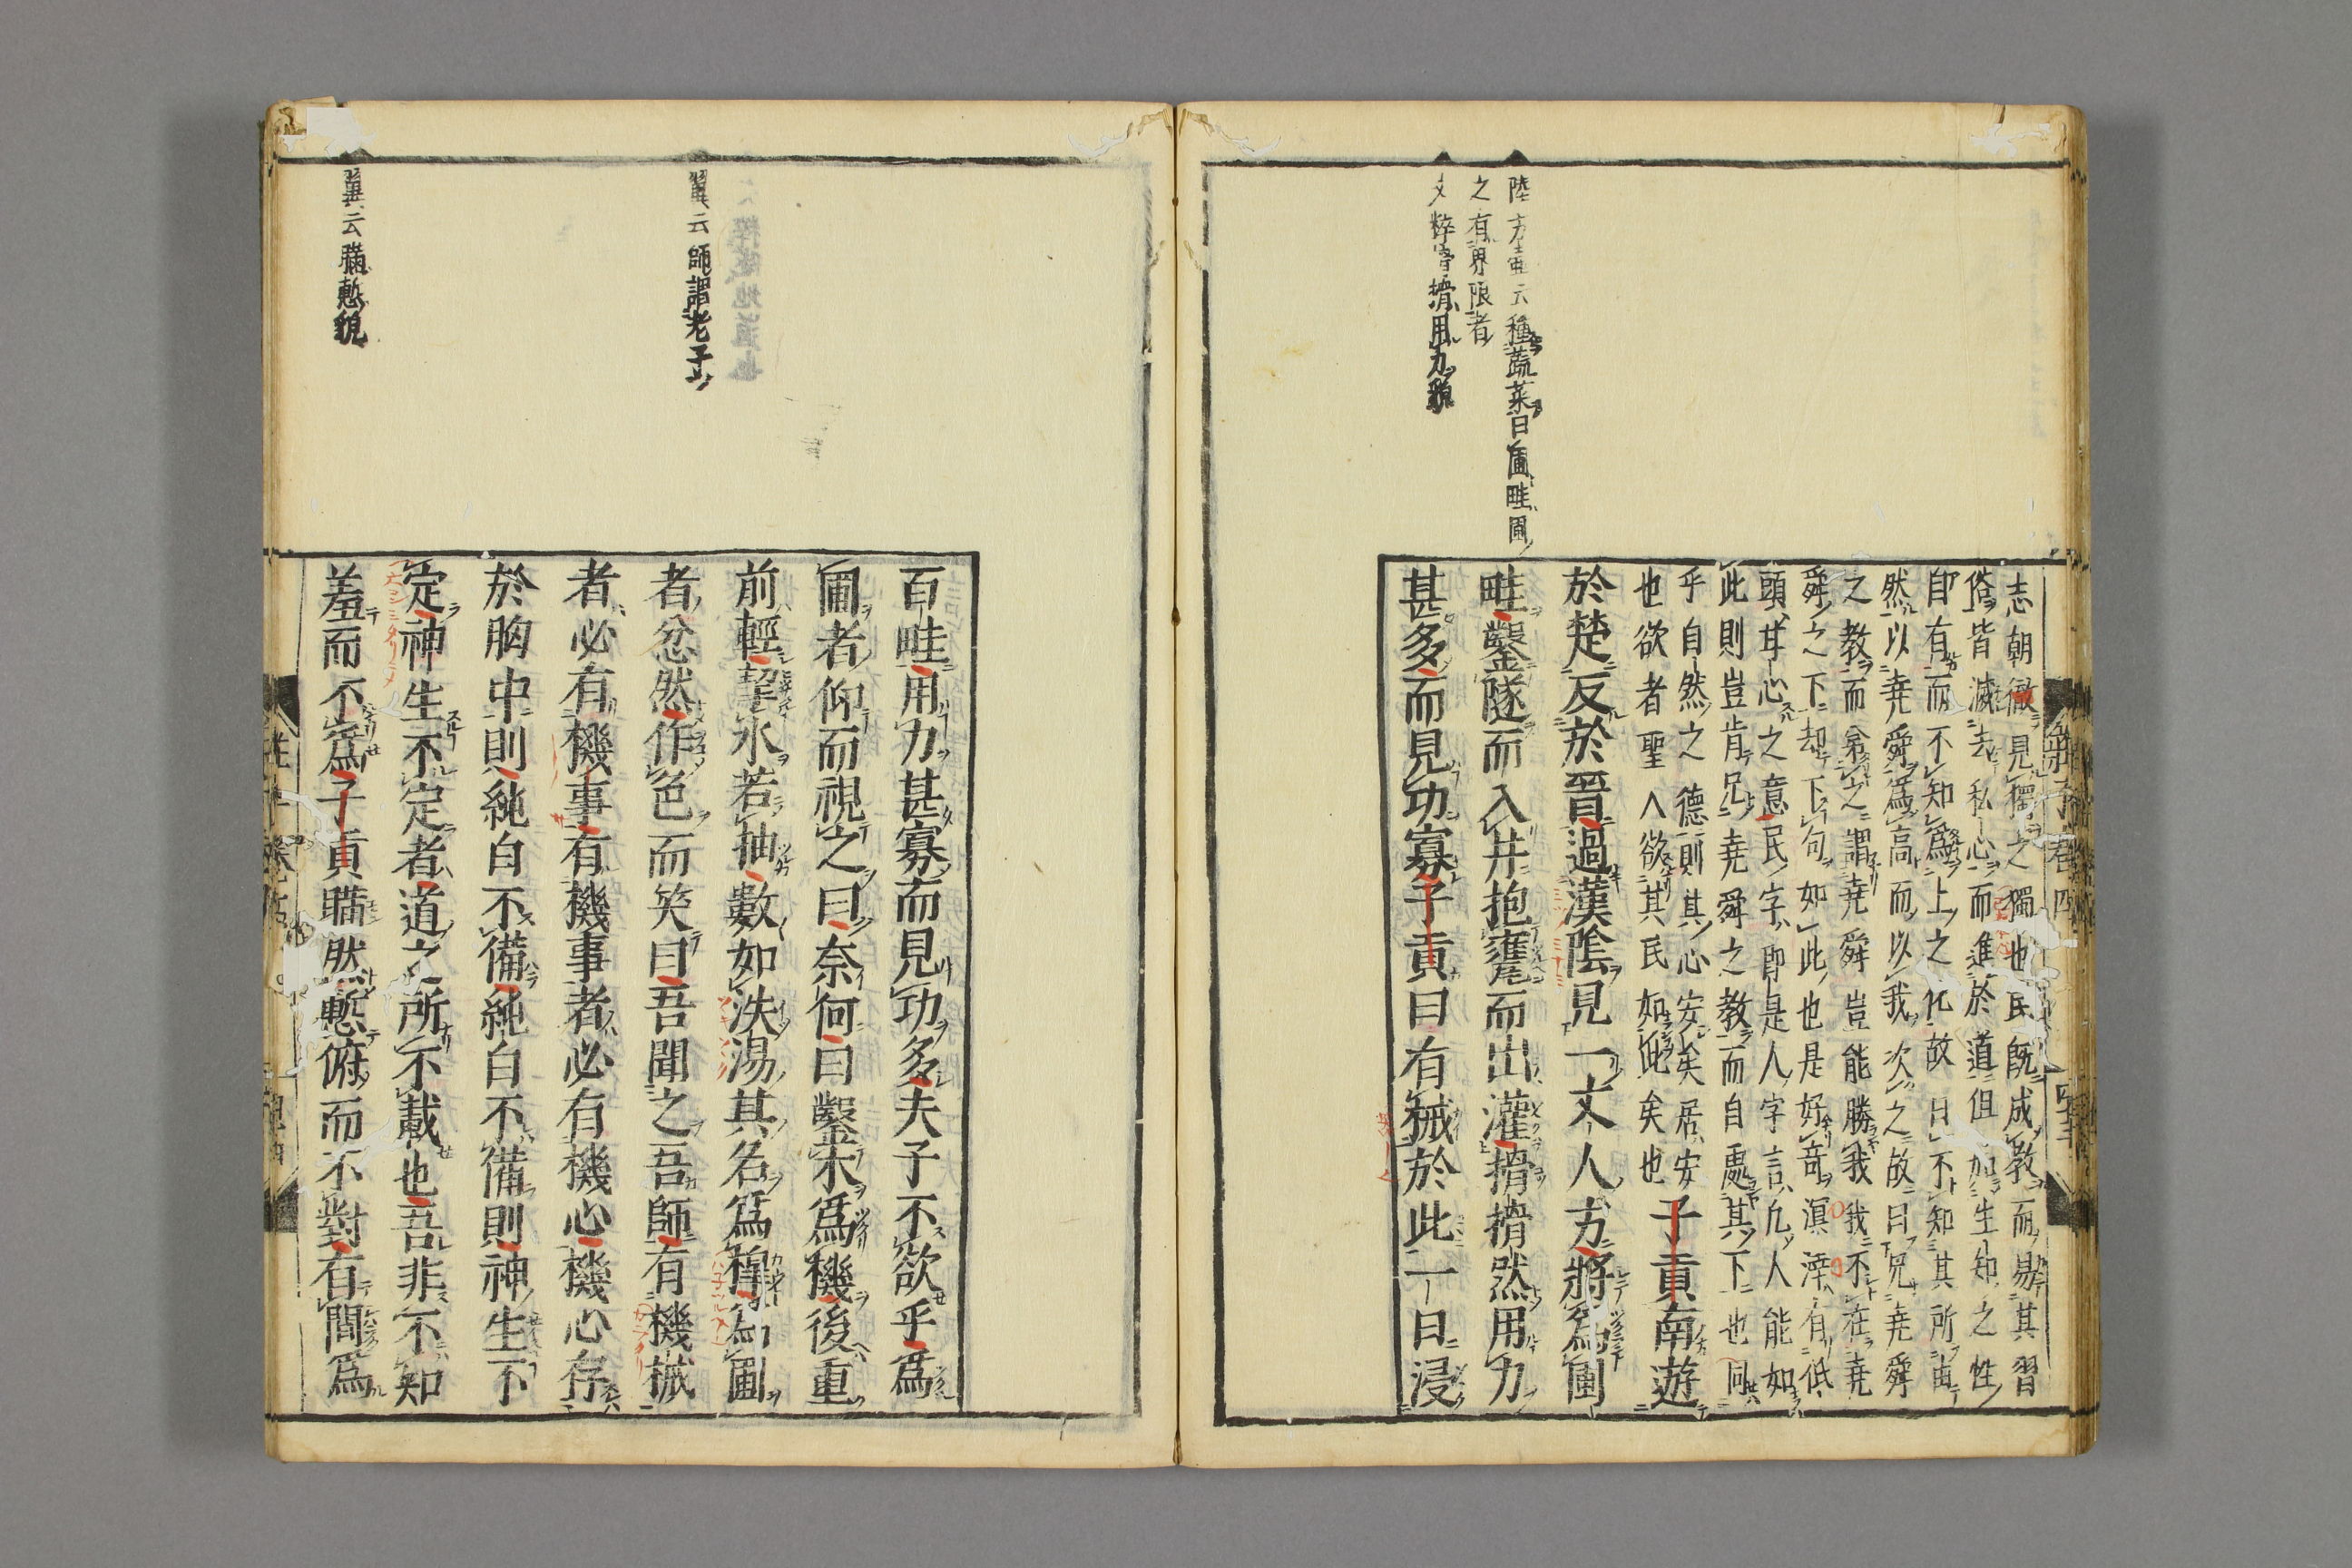 陸方壺云種蔬菜曰圃畦圃
之有界限者
文粹音搰用力貌
志朝徹見獨之獨也民既成教而易其習
俗皆滅去私心而進於道但如生知之性
自有而不知爲上之化故曰不知其所由
然以堯舜爲高而以我次之故曰兄堯舜
之教而弟之謂堯舜豈能勝我我不在堯
舜之下却下句如此也是好奇溟涬有低
頭甘心之意民字即是人字言凢人能如
此則豈肯兄堯舜之教而自處其下也同
乎自然之德則其心安矣居安
也欲者聖人欲其民如此矣也
子貢南遊
於楚反於晉過漢陰見一丈人方將爲圃
畦鑿隧而入井抱甕而出灌搰搰然用力
甚多而見功寡子貢曰有械於此一日浸
百畦用力甚寡而見功多夫子不欲乎爲
圃者仰而視之曰奈何曰鑿木爲機後重
前輕挈水若抽數如泆湯其名爲槹爲圃
者忿然作色而笑曰吾聞之吾師有機械
者必有機事有機事者必有機心機心存
於胸中則純白不備純白不備則神生不
定神生不定者道之所不載也吾非不知
羞而不爲子貢瞞然慙俯而不對有間爲
翼云師謂老子
翼云瞞慙貌